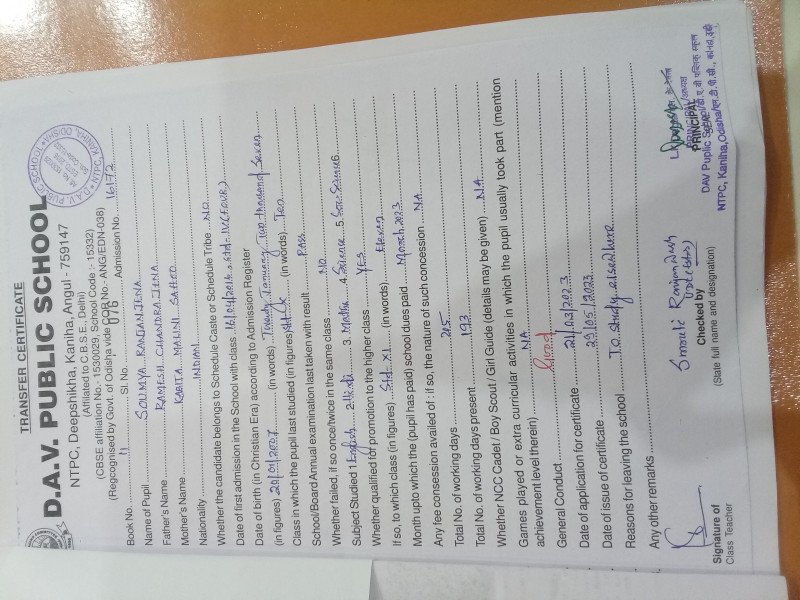 TRANSFER CERTIFICATE
D.A.V. PUBLIC SCHOOL
NTPC, Deepshikha, Kaniha, Angul - 759147
(Affiliated to C.B.S.E., Delhi)
(CBSE affiliation No.- 1530029, School Code :- 15332)
(Regcognised by Govt. of Odisha vide COR No.- ANG/EDN-038)
Book No. 11 Sl. No. 076 Admission No. 16172
Name of Pupil SOUMYA RANJAN JENA
Father's Name RAMESH CHANDRA JENA
Mother's Name KABITA MALINI SAHOO
Nationality INDIAN
Whether the candidate belongs to Schedule Caste or Schedule Tribe NO
Date of first admission in the School with class 16/04/2016, Std-IV(FOUR)
Date of birth (in Christian Era) according to Admission Register
(in figures) 20/01/2007 (in words) Twenty January Two thousand Seven
Class in which the pupil last studied (in figures) Std-X (in words) Ten
School/Board Annual examination last taken with result PASS
Whether failed, if so once/twice in the same class NO
Subject Studied 1 English 2. Hindi 3. Maths 4. Science 5. Soc. Science 6
Whether qualified for promotion to the higher class YES
If so, to which class (in figures) Std. XI (in words) Eleven
Month upto which the (pupil has paid) school dues paid March 2023
Any fee consession availed of : if so, the nature of such concession NA
Total No. of working days 215
Total No. of working days present 193
Whether NCC Cadet / Boy Scout / Girl Guide (details may be given) NA
Games played or extra curricular activities in which the pupil usually took part (mention
achievement level therein) NA
General Conduct Good
Date of application for certificate 21/03/2023
Date of issue of certificate 29/05/2023
Reasons for leaving the school To study elsewhere
Any other remarks
Signature of
Class Teacher
Checked by
(State full name and designation)
PRINCIPAL
DAV Puplic School
NTPC, Kaniha, Odisha